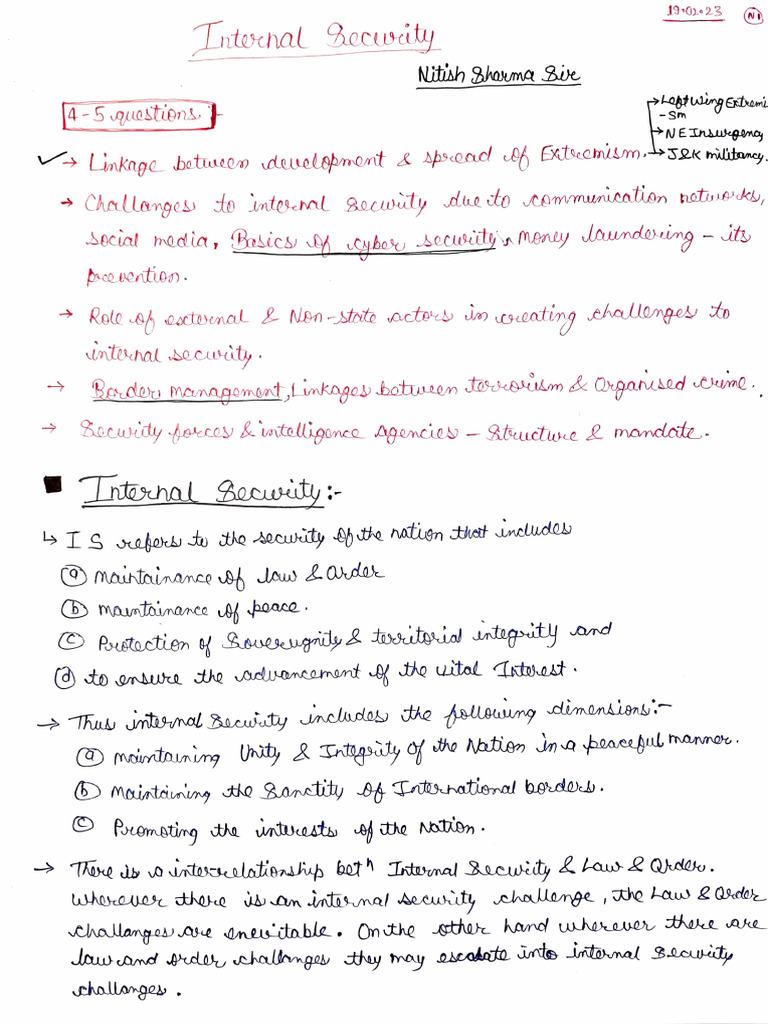 19.02.23 N1
Internal Security
Nitish Sharma Sir
4-5 questions :-
→ Left Wing Extremi
-sm
→ NE Insurgency
→ J&K militancy.
✓ → Linkage between development & spread of Extremism.
→ Challanges to internal security due to communication networks,
social media, Basics of cyber security, Money laundering - its
prevention.
→ Role of external & Non-state actors in creating challenges to
internal security.
→ Border management, Linkages between terrorism & Organised crime.
→ Security forces & intelligence Agencies - Structure & mandate.
■ Internal Security:-
↳ I S refers to the security of the nation that includes
(a) maintainance of law & Order
(b) maintainance of peace.
(c) Protection of Soverugnity & territorial integrity and
(d) to ensure the advancement of the vital Interest.
→ Thus internal Security includes the following dimensions:-
(a) maintaining Unity & Integrity of the Nation in a peaceful manner.
(b) Maintaining the Sanctity of International borders.
(c) Promoting the interests of the Nation.
→ There is a interrelationship betⁿ Internal Security & Law & Order.
Wherever there is an internal security challenge, the Law & Order
challanges are enevitable. On the other hand wherever there are
law and order challanges they may escalate into internal Security
challanges.